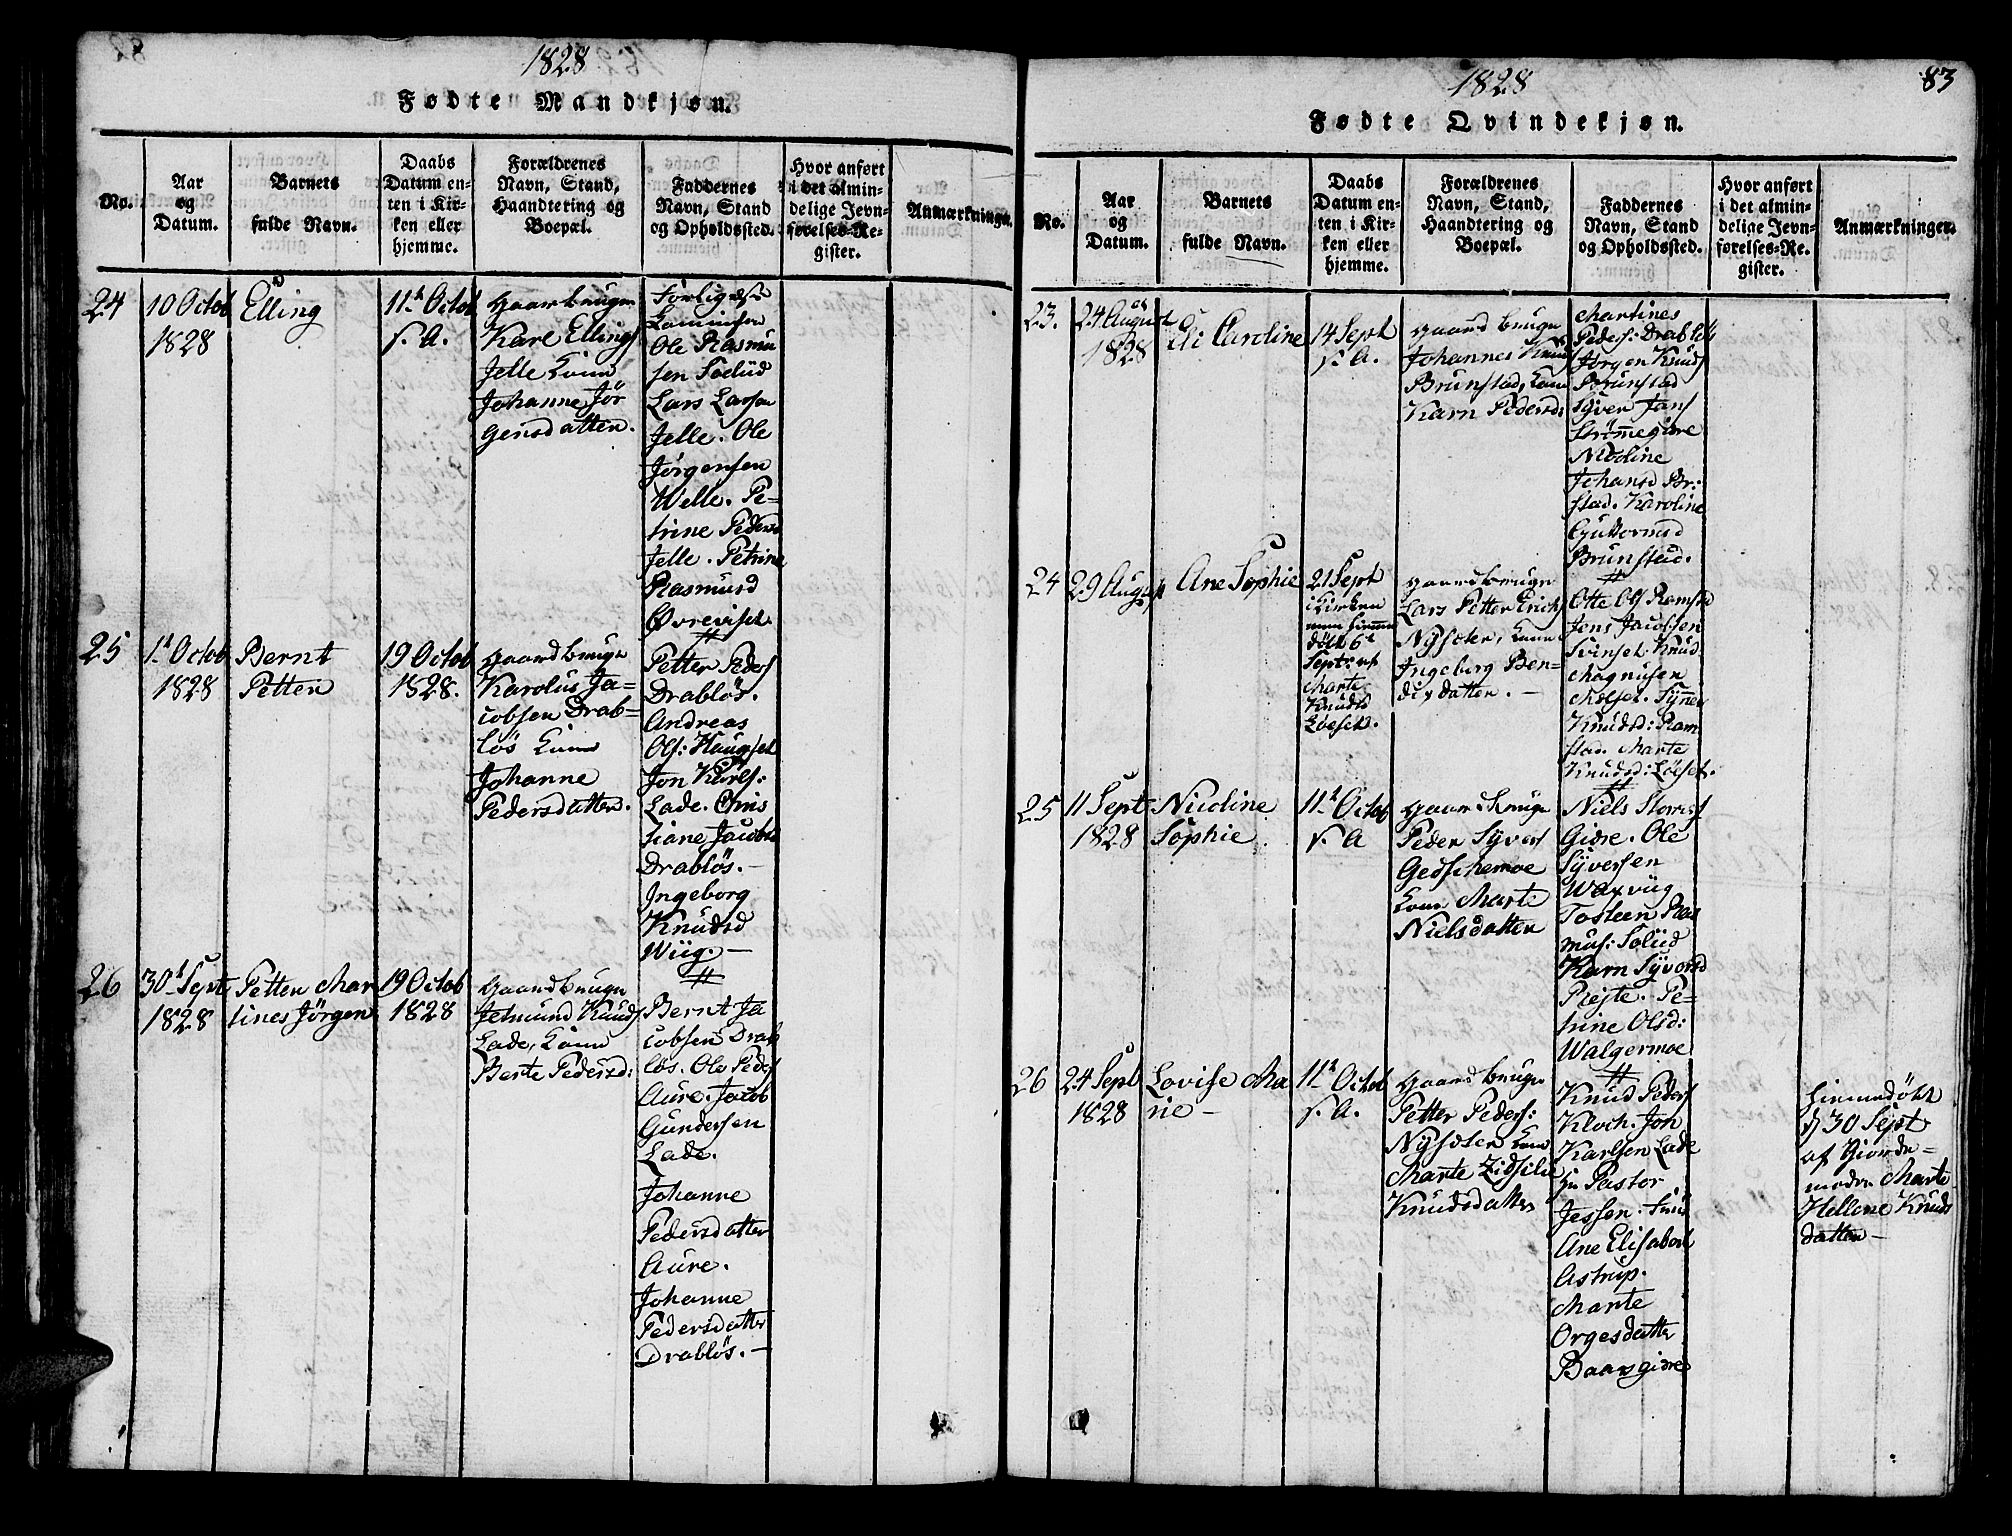 1828
Fødte Mandkjøn.
No.
Aar
og
Datum.
Barnets
fulde Navn.
Daabs
Datum en-
ten i Kir-
ken eller
hjemme.
Forældrenes
Navn, Stand,
Haandtering og
Boepæl.
Faddernes
Navn, Stand
og Opholdssted.
Hvor anført
i det almin-
delige Jevn-
førelses-Re-
gister.
Anmærkninger.
24
10 Octob
1828
Elling
11t Octob
s. A.
Gaardbruger
Karl Ellings
Jelle Kone
Johanne Jör
gensdatter.
Ole Rasmu
sen
Lars Larsen
Jelle. Ole
Jørgensen
Welle. Pe-
trine Pedersd
Jelle. Petrine
Rasmusd
25
1t Octob
1828
Bernt
Petter
19 Octob
1828.
Gaardbruger
Karolus Ja-
cobsen Drab-
lös Kone
Johanne
Pedersdatter.
Petter Peders
Drablös.
Andreas
Ols: Haugset
Jon Karls:
Lade. Chris
tiane Jacobs
Drablös.—
Ingeborg
Knudsd
Wiig.—
26
30t Sept
1828
Petter Mar
tines Jörgen
19 Octob
1828
Gaardbruger
Jetmund Knuds
Lade, Kone
Berte Pedersd:
Bernt Ja
cobsen Drab
lös. Ole Peders
Aure. Jacob
Gundersen
Lade.
Johanne
Pedersdatter
Aure.
Johanne
Pedersdatter
Drablös.—
1828
83
Fødte Qvindekjøn.
No.
Aar
og
Datum.
Barnets
fulde Navn.
Daabs
Datum en-
ten i Kir-
ken eller
hjemme.
Forældrenes
Navn, Stand,
Haandtering og
Boepæl.
Faddernes
Navn, Stand
og Opholdssted.
Hvor anført
i det almin-
delige Jevn-
førelses-Re-
gister.
Anmærkninger.
23.
24 August
1828
Eli Caroline
14 Sept
s. A.
Gaardbruger
Johannes Knuds
Brunstad, Kone
Karn Pedersd:
Martines
Peders: Drabløs
Jørgen Knuds
Brunstad
Syver Jans
Strømmegiære
Nicoline
Johansd Br:
stad. Karoline
Guttormsd
Brunstad.
24
29 August
Ane Sophie
21 Sept
i Kirken
men hiemme
döbt 6t
Sept: af
Marte
Knudsd
Löeset.
Gaardbruger
Lars Petter Erichs
Nysæter, Kone
Ingeborg Ben-
dixdatter.—
Otte Ols Ramstad
Jens Jacobsen
Svinset. Knud
Magnusen
Knudsd: Ram
stad. Marte
Knudsd: Löeset.
25
11 Sept
1828
Nicoline
Sophie
11t Octob
s. A
Gaardbruger
Peder Syvers
Gedschemoe
Kone Marte
Nielsdatter
Giære. Ole
Syversen
Tosteen Ras
mus:
Karn Syversd
Pe-
trine Olsd:
Walgermoe
26
24 Sept
1828
Lovise Ma
rie—
11t Octob
s. A.
Gaardbruger
Petter Peders:
Nysæter Kone
Marte Zidsele
Knudsdatter
Knud Peders
Kloch. Jon
Karlsen Lade
Hr Pastor
Jessen. Frue
Ane Elisabeth
Astrup.
Marte
Orgesdatter
Baarsgiære
Hiemmedöbt
d 30 Sept
af Giorde-
moder Marte
Hellene Knuds
datter—